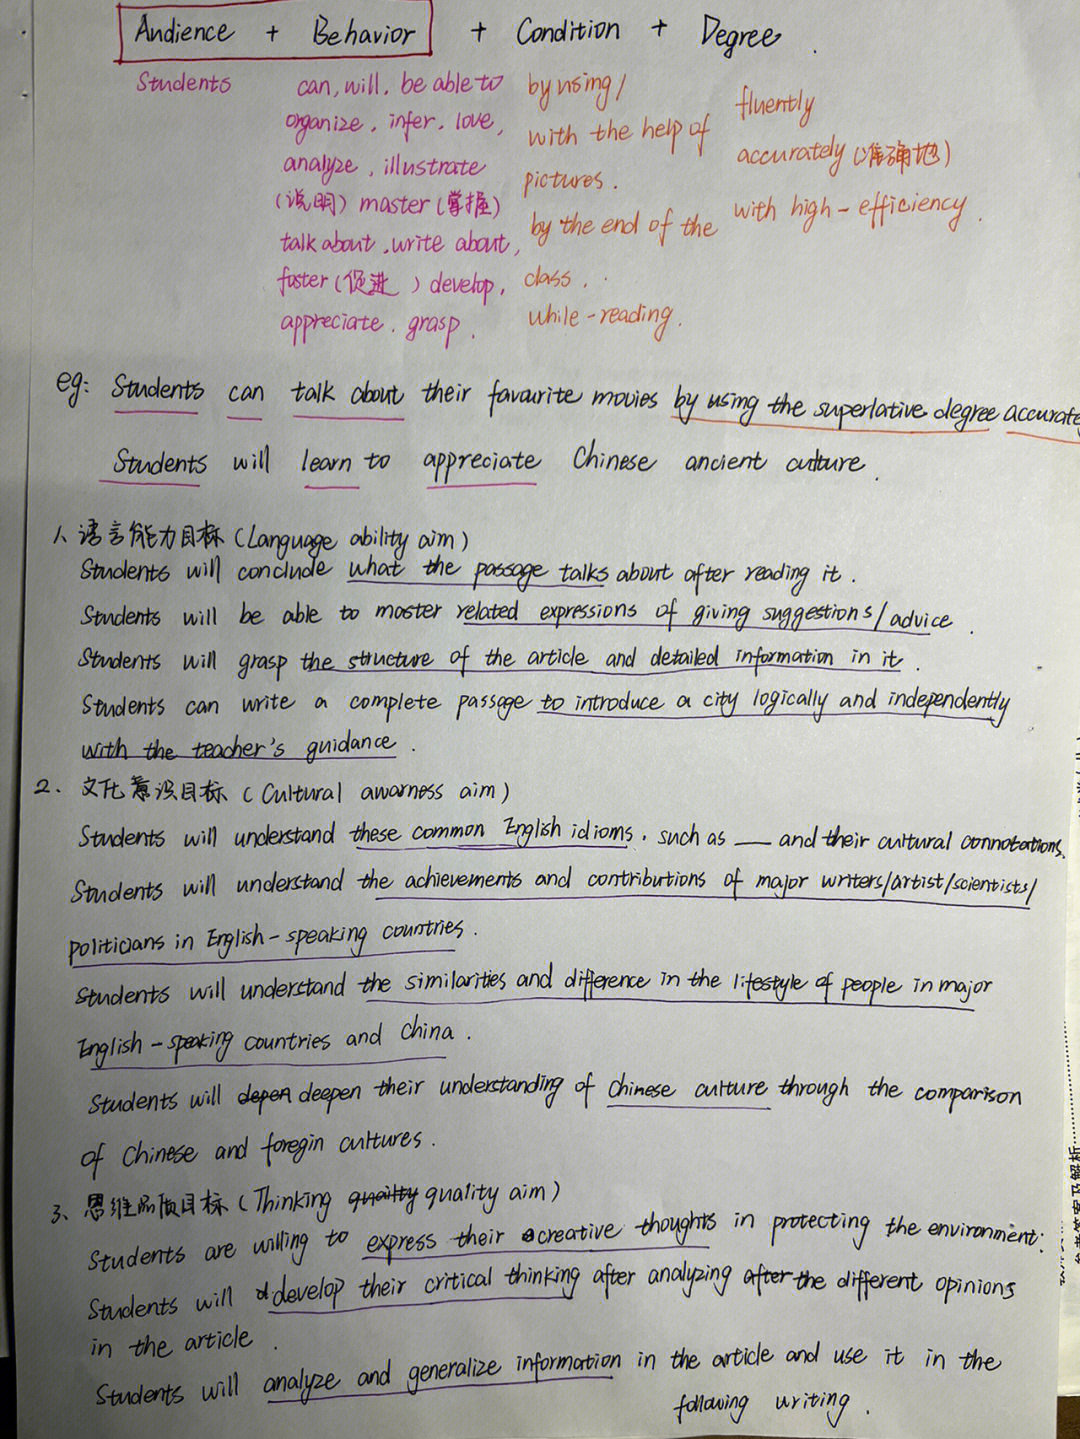 Audience + Behavior + Condition + Degree.
Students can, will, be able to by using/ fluently
organize, infer, love, with the help of accurately (准确地)
analyze, illustrate pictures. with high-efficiency.
(说明) master (掌握) by the end of the
talk about, write about, class.
foster (促进) develop, while-reading.
appreciate, grasp.
eg: Students can talk about their favourite movies by using the superlative degree accurate
Students will learn to appreciate Chinese ancient culture.
1、语言能力目标 (Language ability aim)
Students will conclude what the passage talks about after reading it.
Students will be able to master related expressions of giving suggestions/advice.
Students will grasp the structure of the article and detailed information in it.
Students can write a complete passage to introduce a city logically and independently
with the teacher's guidance.
2. 文化意识目标 (Cultural awarness aim)
Students will understand these common English idioms, such as __ and their cultural connotations.
Students will understand the achievements and contributions of major writers/artist/scientists/
politicians in English-speaking countries.
Students will understand the similarities and difference in the lifestyle of people in major
English-speaking countries and China.
Students will depen deepen their understanding of Chinese culture through the comparison
of Chinese and foregin cultures.
3、思维品质目标 (Thinking quailty quality aim)
Students are willing to express their creative thoughts in protecting the environment.
Students will develop their critical thinking after analyzing after the different opinions
in the article.
Students will analyze and generalize information in the article and use it in the
following writing.
参考答案及解析